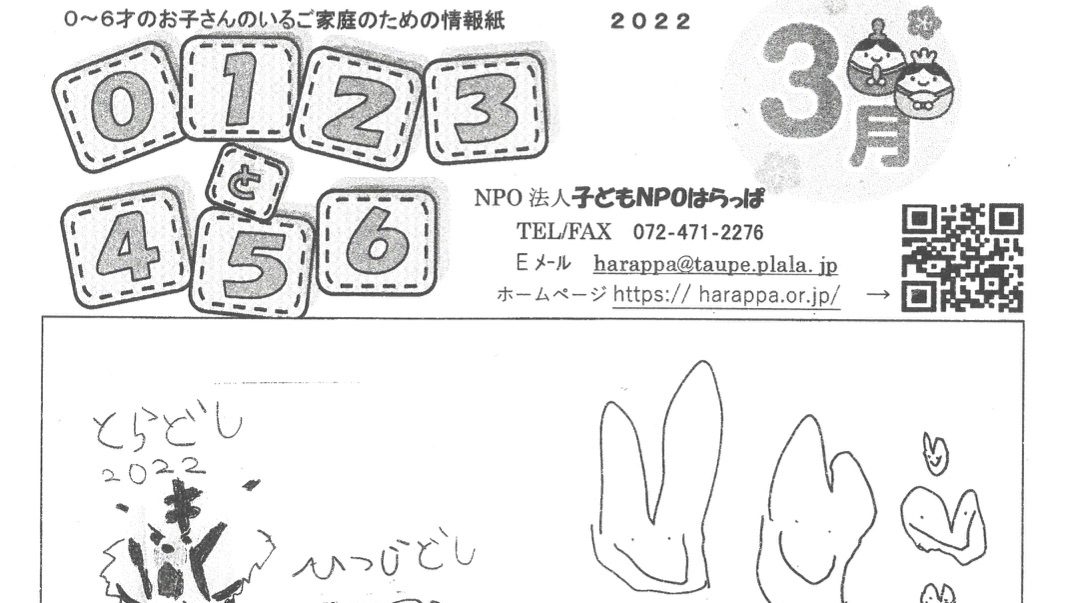 0～6才のお子さんのいるご家庭のための情報紙
2022
0 1 2 3
と
4 5 6
3月
NPO 法人子どもNPOはらっぱ
TEL/FAX 072-471-2276
Eメール harappa@taupe.plala.jp
ホームページ https:// harappa.or.jp/ →
とらどし
2022
ひつじどし